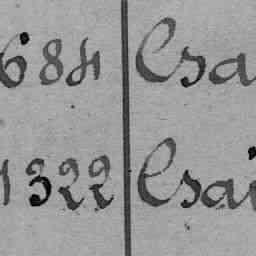 684 Csa
1322 Csai